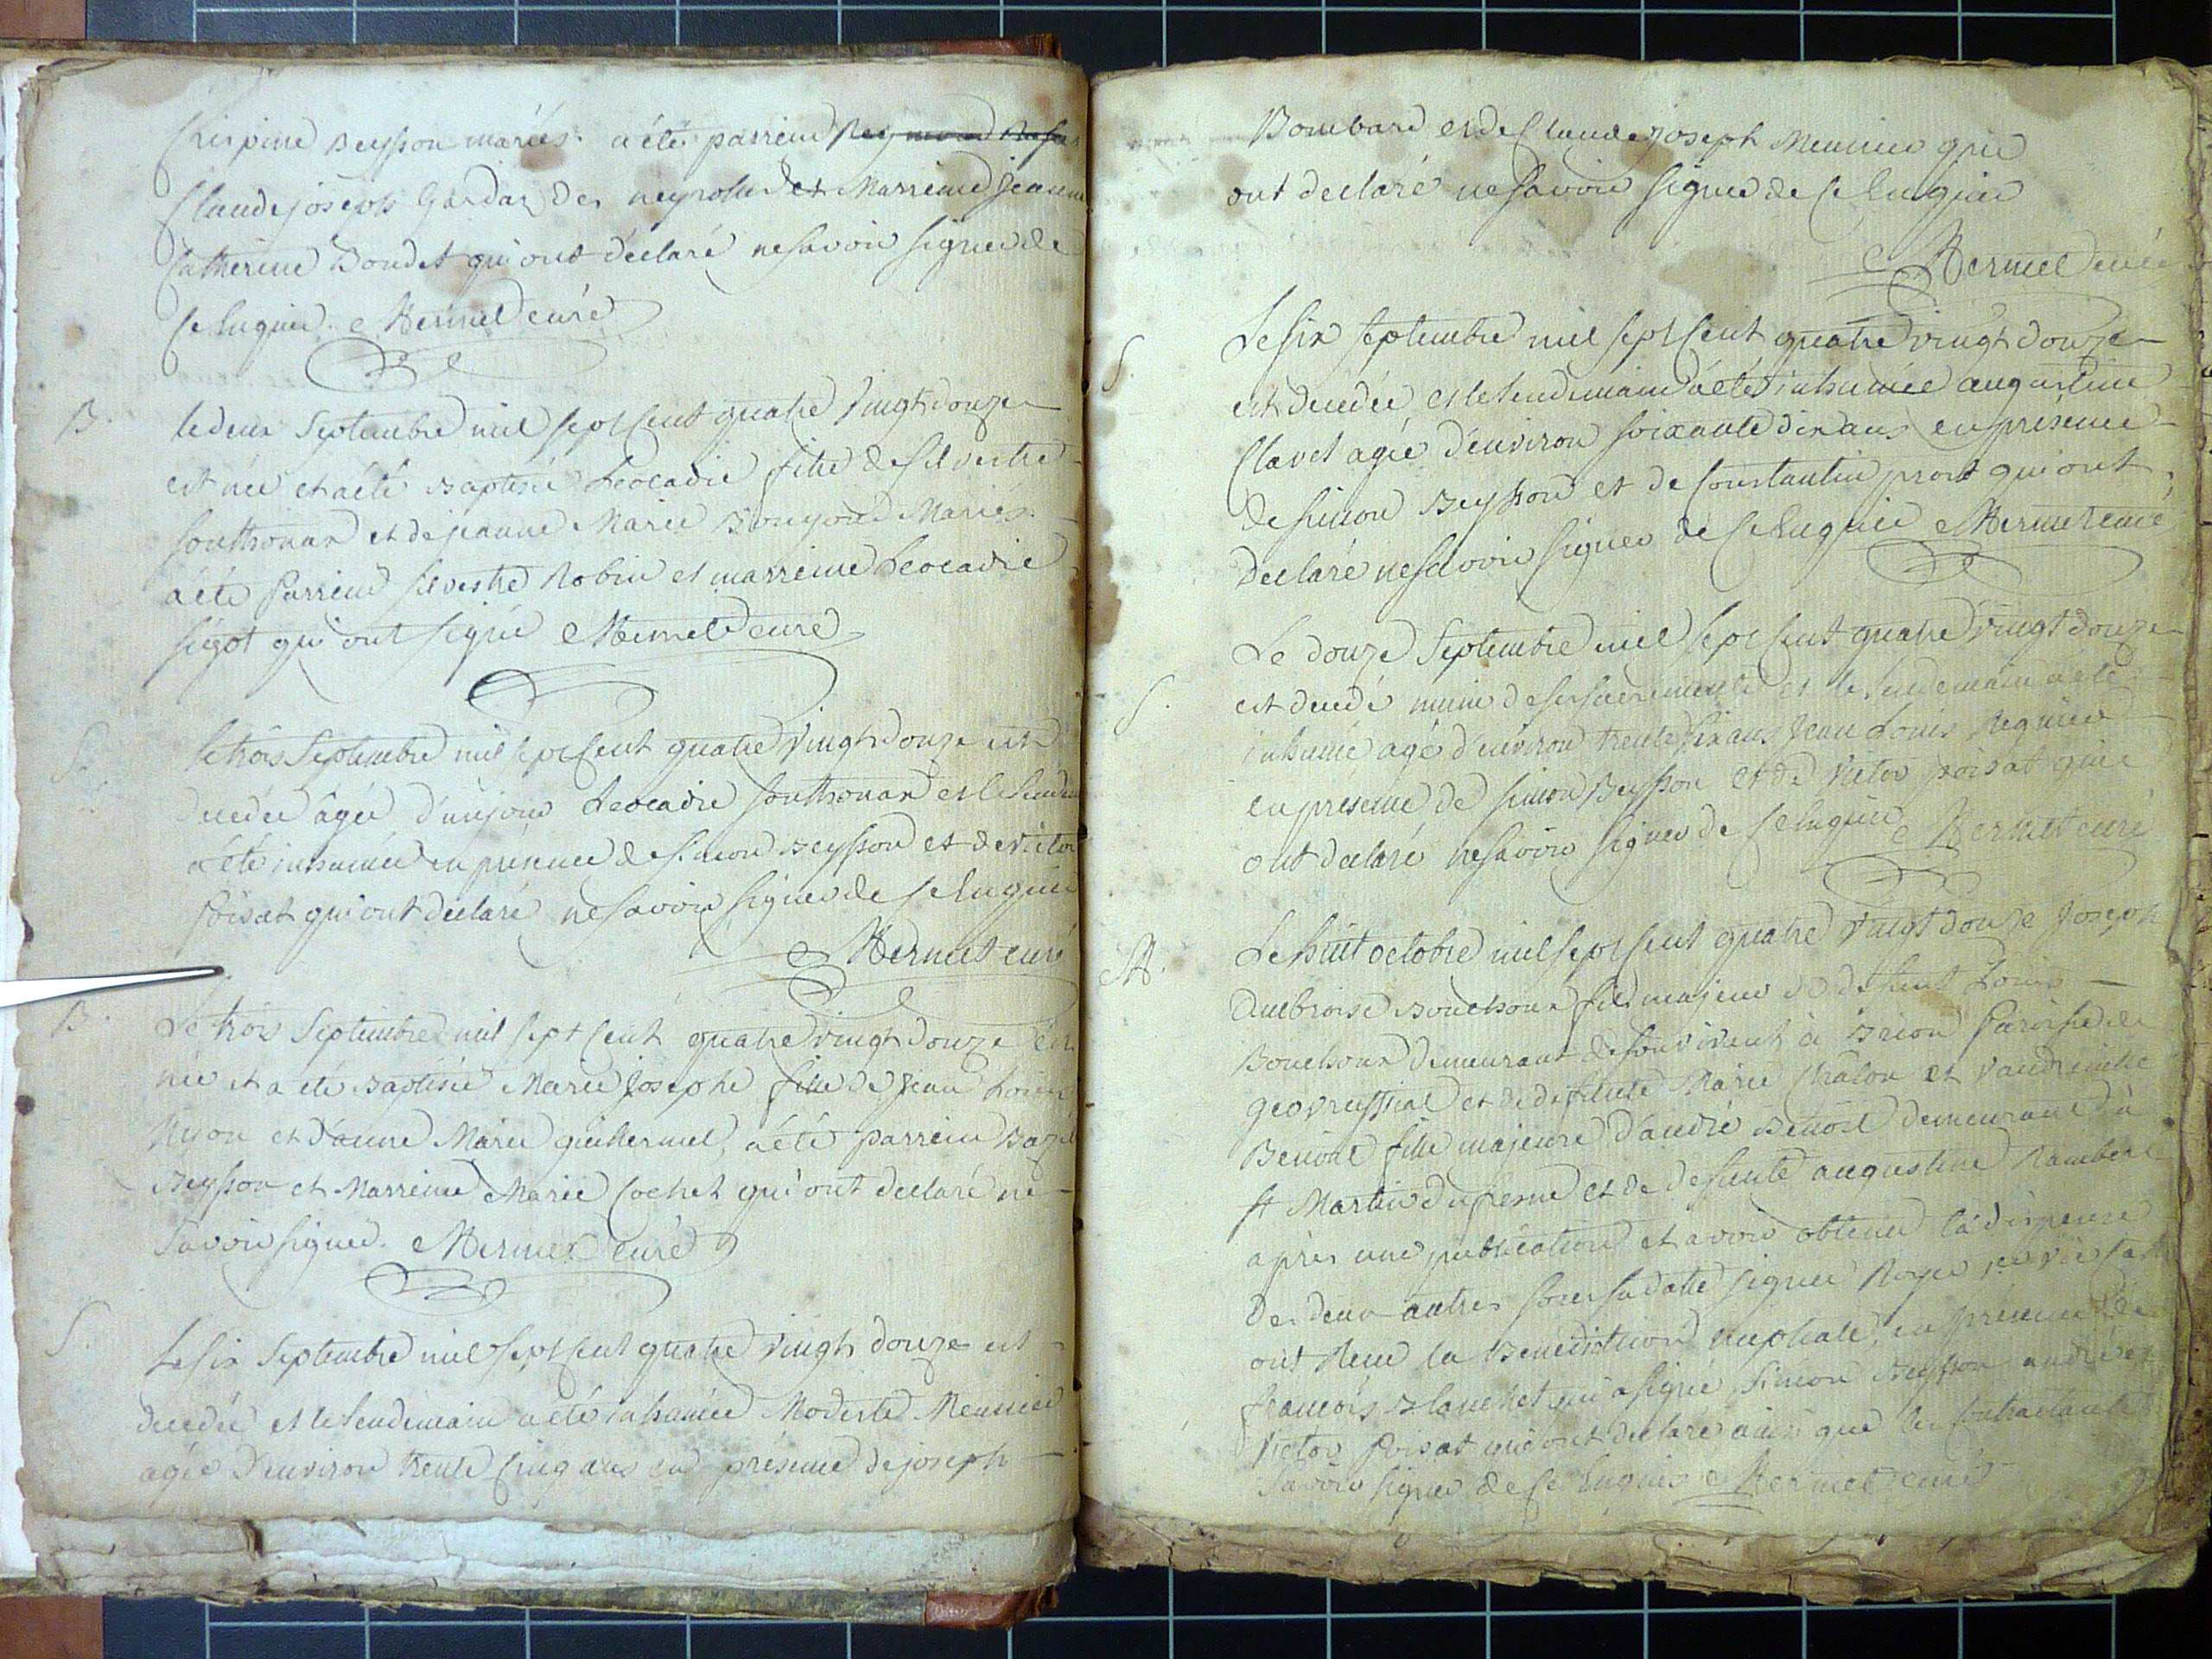 Crispine Beysson mariés. a été parrein
Claude joseph Gardaz des neyrolles et Marreine jeanne
Catherine Boudet qui ont déclaré ne savoir signer de
ce Enquis. Hermet curé
B. le deux Septembre mil sept Cent quatre Vingt douze
est née et a été Baptisée Leocadie fille de Silvestre
Southonax et de jeanne Marie Bougond Mariés.
a été Parrein Silvestre Robin et marreine Leocadie
Sigot qui ont signé Hermet curé
S. le trois Septembre mil sept Cent quatre Vingt douze est
decedée âgée d'un jour Leocadie Southonax et le lendem
a été inhumée en présence de Simon Beysson et de victor
Poisat qui ont declaré ne savoir signer de ce Enquis
Hermet curé
B. Le trois Septembre mil sept Cent quatre vingt douze est
née et a été Baptisée Marie Josephe fille de Jean Louis
Nyon et d'anne Marie guillermet, a été parrein
Beysson et Marreine Marie Cochet qui ont declaré ne
Savoir signer. Hermet curé
S. Le six Septembre mil sept Cent quatre Vingt douze est
decedée et le lendemain a été inhumée Modeste Meunier
agée d'environ trente cinq ans en présence de joseph
Bombard et de Claude joseph Meunier qui
ont declaré ne savoir signer de ce Enquis
Hermet curé
S. Le six Septembre mil sept Cent quatre vingt douze
est decedée et le lendemain a été inhumée augustine
Clavet agée d'environ soixante dix ans en présence
de Simon Beysson et de Constantin prost qui ont
declaré ne savoir signer de ce Enquis Hermet curé
S. Le douze Septembre mil sept Cent quatre vingt douze
est decedé muni de ses sacrements et le lendemain a été
inhumé agé d'environ trente six ans Jean Louis
en présence de Simon Beysson et de Victor poisat qui
ont declaré ne savoir signer de ce Enquis Hermet curé
M. Le huit octobre mil sept Cent quatre vingt douze Joseph
Ambroise Bouchoux fils majeur de defunt Louis
Bouchoux demeurant de son vivant à Brion Paroisse de
geovressiat et de defunte Marie Châlon et
Benoit fille majeure d'andré Benoit demeurant à
St Martin du fresne et de defunte augustine Rambert
après une publication et avoir obtenu la dispense
des deux autres sous sa datte signée Royer
ont Reçu la Benediction nuptiale, en presence de
françois Blanchet qui a signé, Simon Beysson andré et
Victor Poisat qui ont declaré ainsi que les Contractants
Savoir signer de ce Enquis Hermet curé